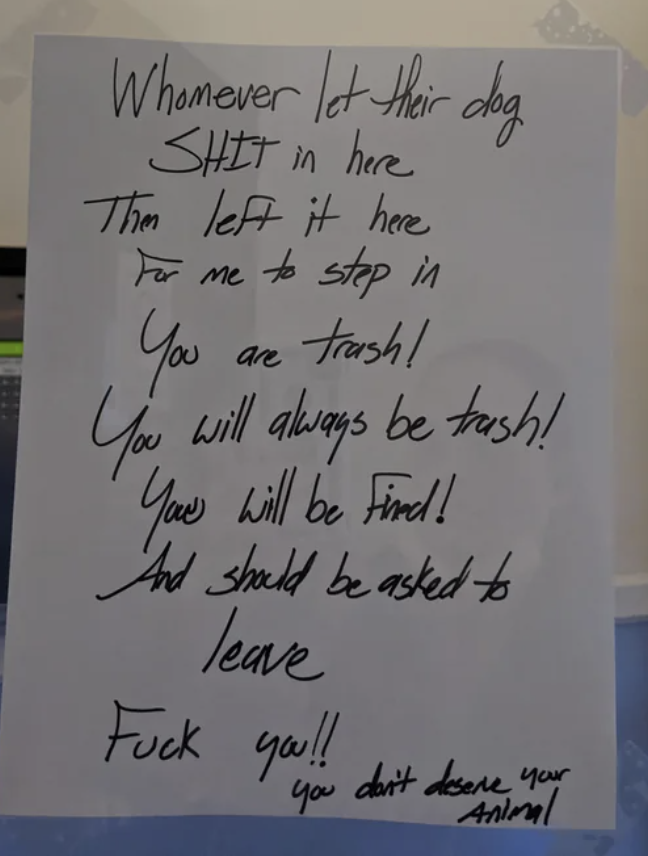 Whomever let their dog
SHIT in here
Then left it here
For me to step in
You are trash!
You will always be trash!
You will be Fined!
And should be asked to
leave
Fuck you!!
you don't deserve your
Animal